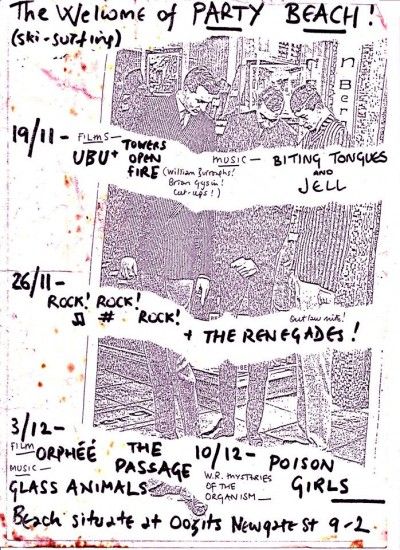 The Wellcome of PARTY BEACH!
(ski-surfing)
19/11- FILMS-
UBU + TOWERS
OPEN
FIRE
(William Burroughs!
Brian Gysin!
Cut-ups!)
MUSIC- BITING TONGUES
AND
JELL
26/11-
ROCK! ROCK!
♫ # ROCK!
Outlaw nite!
+ THE RENEGADES!
3/12-
FILM ORPHÉÉ
MUSIC- THE
PASSAGE
GLASS ANIMALS
10/12-
W.R. MYSTERIES
OF THE
ORGANISM-
POISON
GIRLS
Beach situate at Oozits Newgate St 9-2